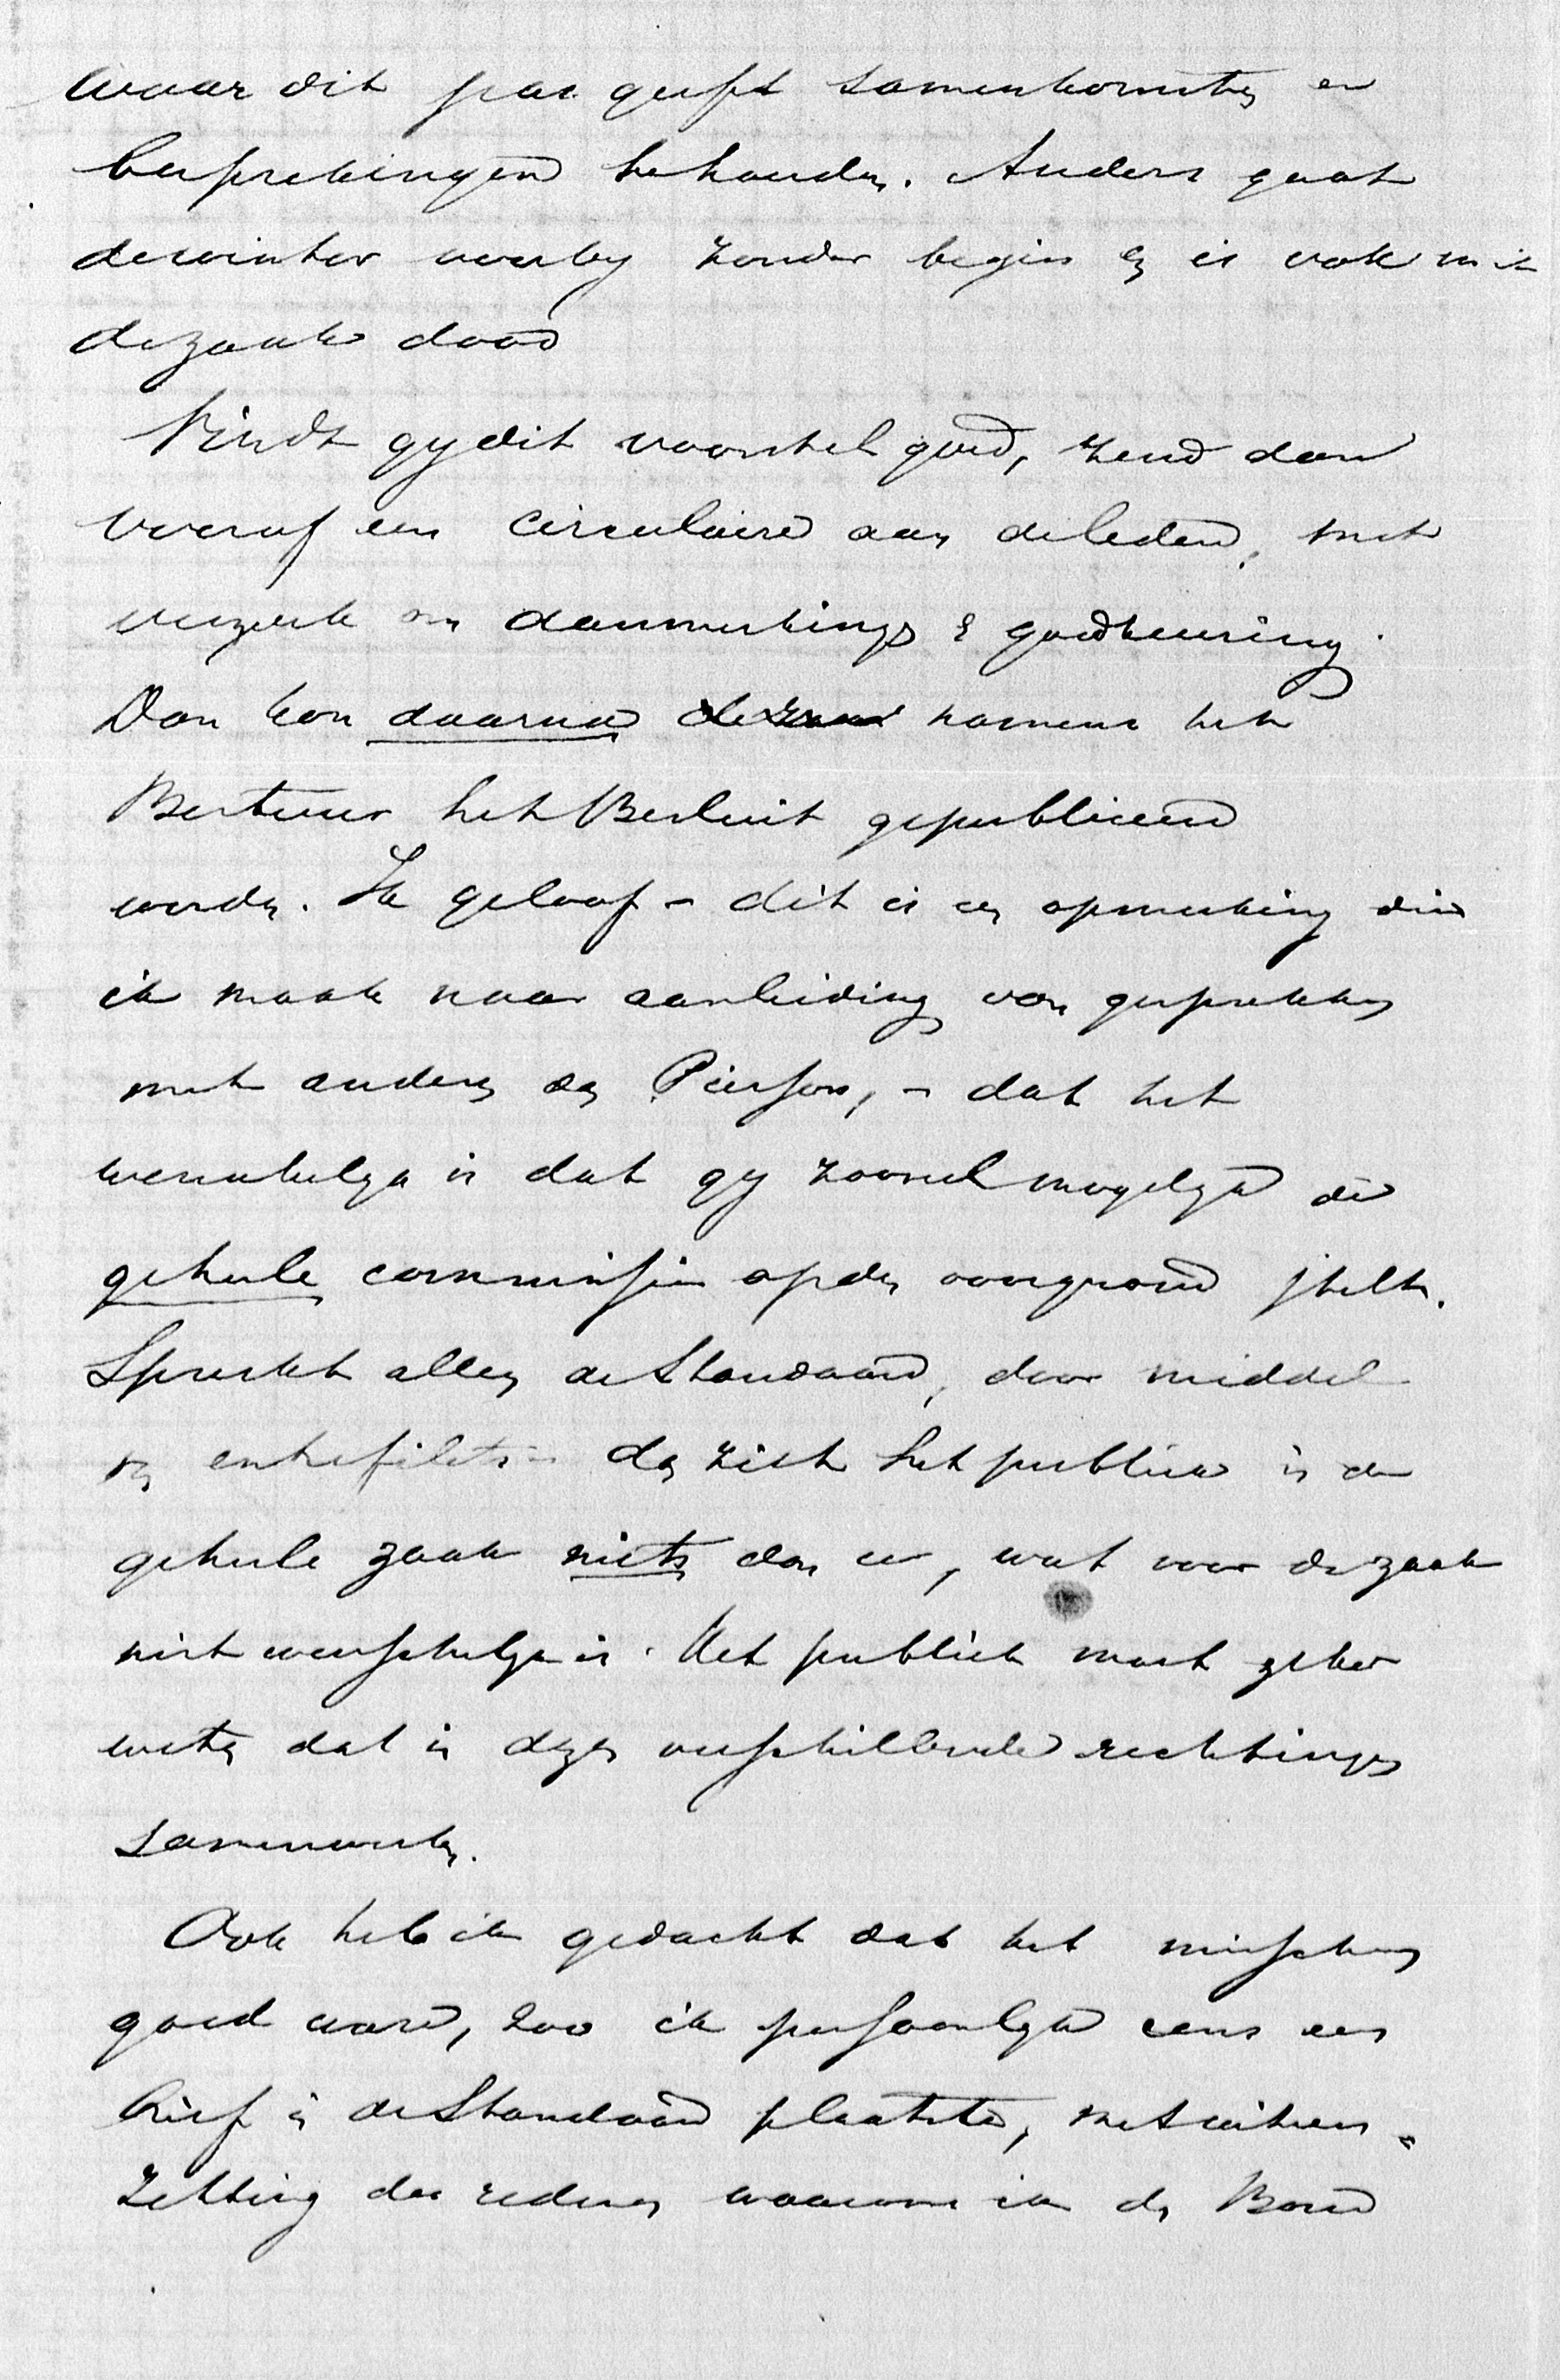 waar dit pas geeft samenkomsten en
besprekingen te houden. Anders gaat
de winter voorby zonder begin & is ook m. i.
de zaak dood
Vindt gy dit voorstel goed, zend dan
vooraf een circulaire aan de leden, met
verzoek om aanmerkings & goedkeuring.
Dan kon daarna namens het
Bestuur het Besluit gepubliceerd
worden. Ik geloof - dit is een opmerking die
ik maak naar aanleiding van gesprekken
met anderen dan Pierson, - dat het
wenschelyk is dat gy zooveel mogelyk de
geheele commissie op den voorgrond stelt.
Spreekt alleen de Standaard, door middel
van entrefilets dan ziet het publiek in de
geheele zaak niets dan u, wat voor de zaak
niet wenschelyk is. Het publiek moet zeker
weten dat in dezen verschillende richtingen
samenwerken.
Ook heb ik gedacht dat het misschien
goed ware, zoo ik persoonlyk eens een
brief in de Standaard plaatste, met uiteen-
zetting der redenen waarom ik den Bond